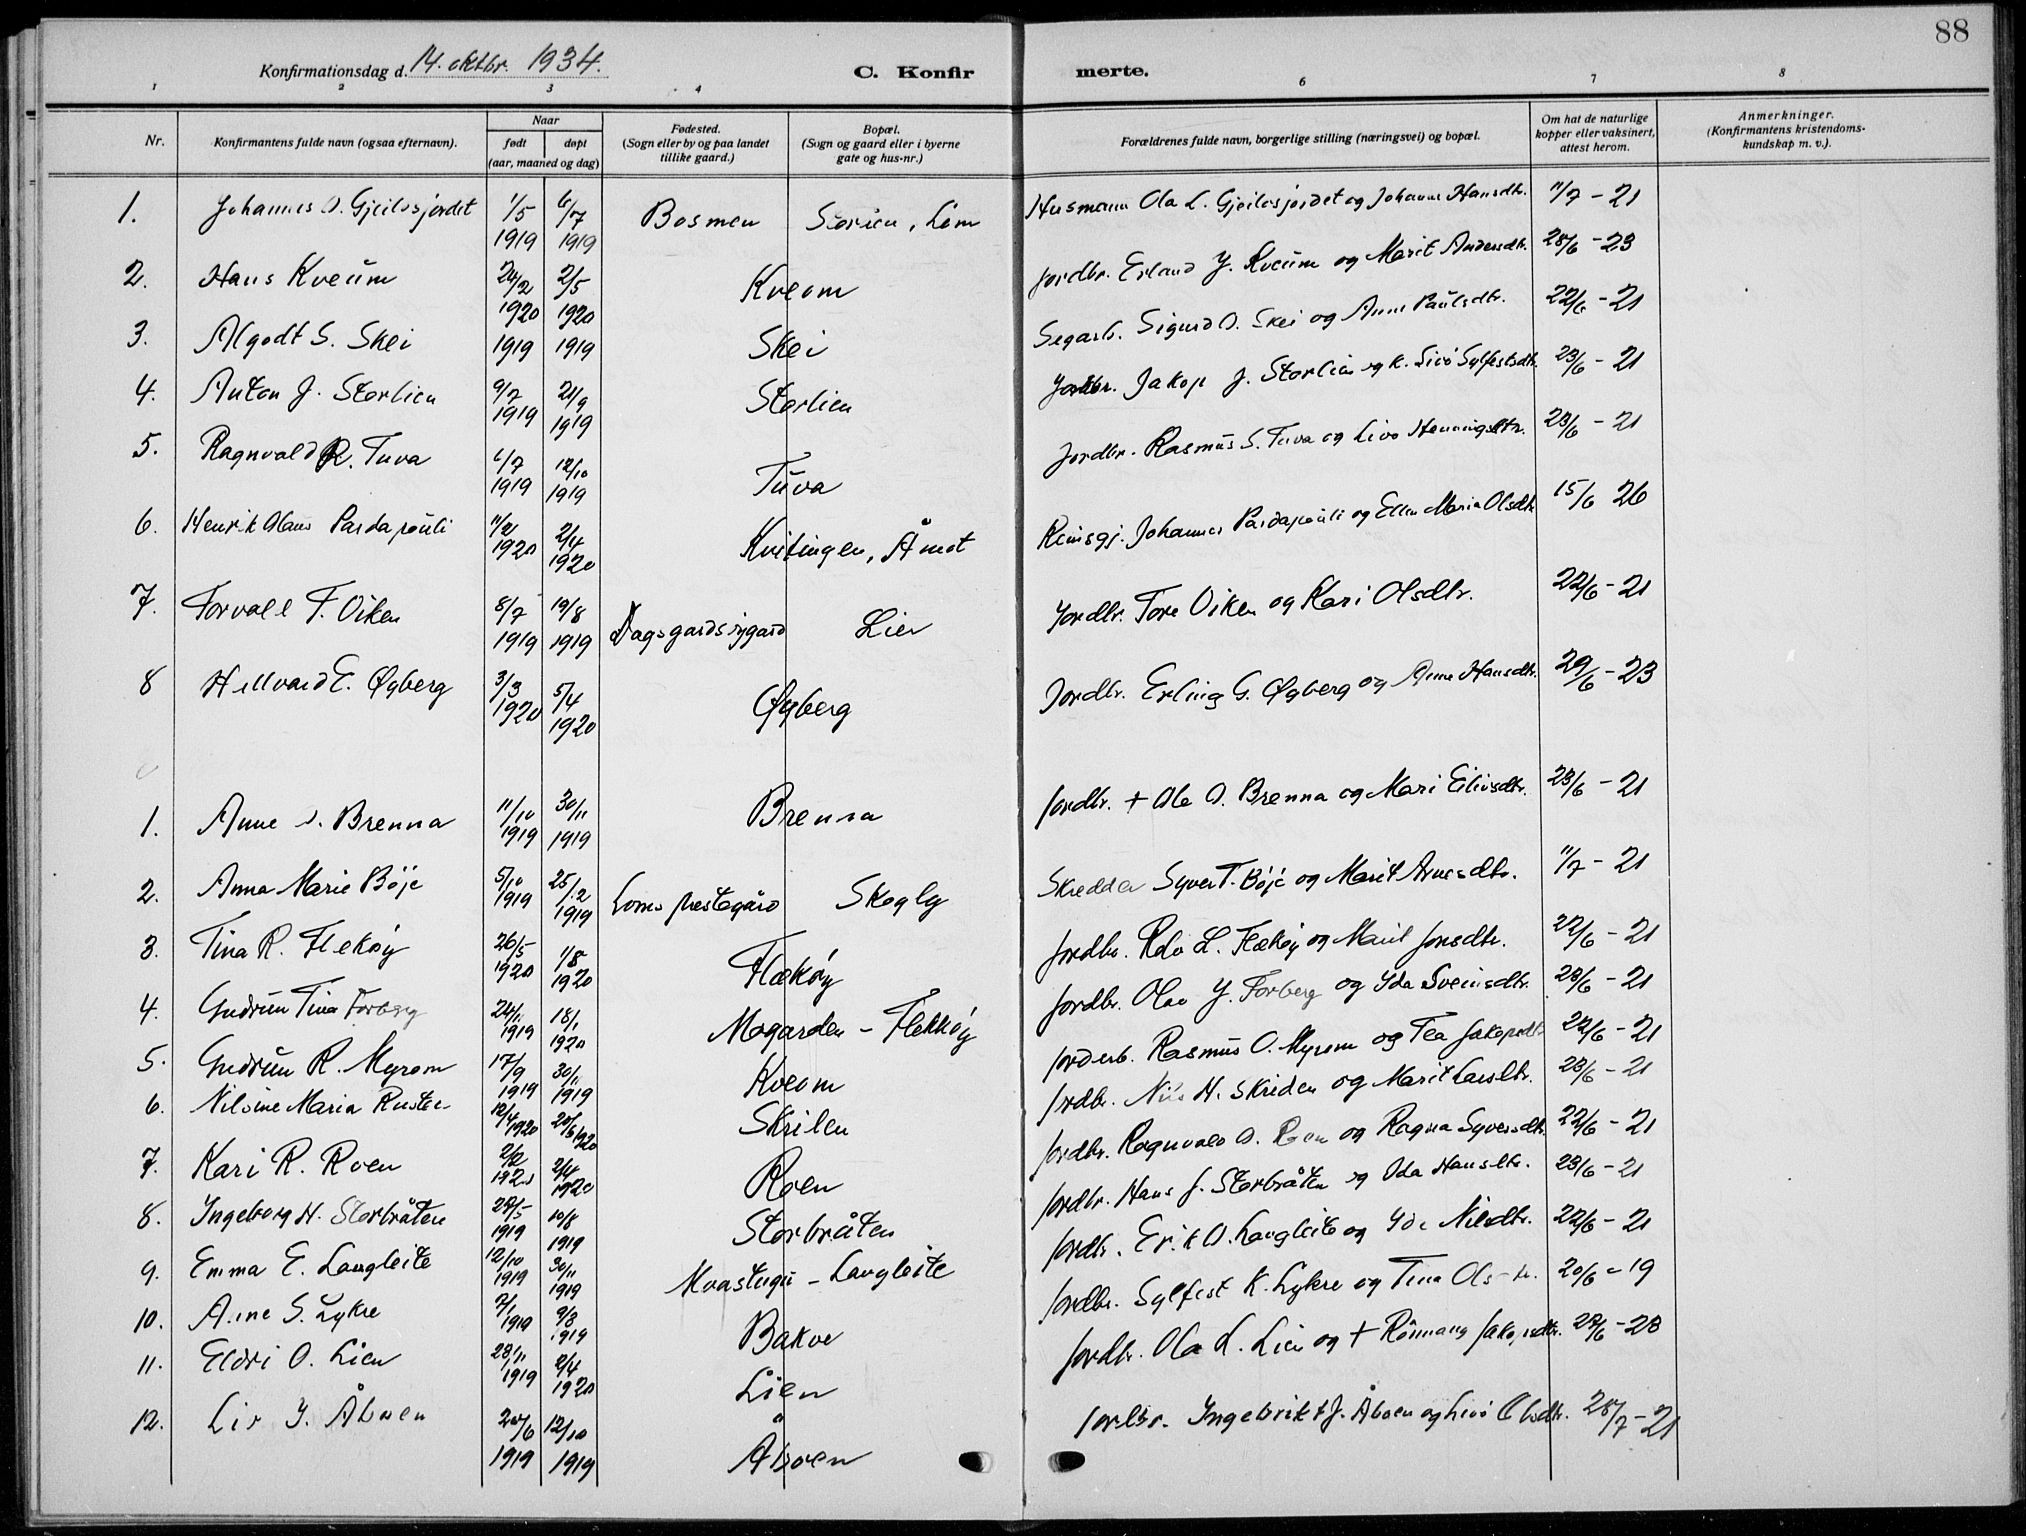 88
Konfirmationsdag d. 14. oktbr. 1934. C. Konfirmerte.
1 2 3 4 6 7 8
Nr. Konfirmantens fulde navn (ogsaa efternavn). Naar født døpt (aar, maaned og dag) Fødested. (Sogn eller by og paa landet tillike gaard.) Bopæl. (Sogn og gaard eller i byerne gate og hus-nr.) Forældrenes fulde navn, borgerlige stilling (næringsvei) og bopæl. Om hat de naturlige kopper eller vaksinert, attest herom. Anmerkninger. (Konfirmantens kristendoms-kundskap m. v.).
1. Johannes O. Gjeilosjordet 1/5 1919 6/7 1919 Bosmen Storien, Lom Husmann Ola L. Gjeilosjordet og Johanne Hansdtr. 11/7 - 21
2. Hans Kveum 24/2 1920 2/5 1920 Kveom Jordbr. Erland J. Kveum og Marit Andersdtr. 28/6 - 23
3. Algodt S. Skei 1919 1919 Skei Sigurd O. Skei og Anne Paulsdtr. 22/6 - 21
4. Anton J. Storlien 9/7 1919 21/9 1919 Storlien Jordbr. Jakop J. Storlien og K. Livo Sylfestsdtr. 23/6 - 21
5. Ragnvald R. Tuva 6/7 1919 12/10 1919 Tuva Jordbr. Rasmus S. Tuva og Livo Henningsdtr. 23/6 - 21
6. Henrik Olaus Pardapouli 11/2 1920 2/4 1920 Kvitingen, Åmot Johannes Pardapouli og Ellen Maria Olsdtr. 15/6 26
7. Torvald T. Viken 8/7 1919 19/8 1919 Dagsgardsnygard Lien Jordbr. Tore Viken og Kari Olsdtr. 22/6 - 21
8 Hallvard E. Øyberg 3/3 1920 5/4 1920 Øyberg Jordbr. Erling G. Øyberg og Anne Hansdtr. 29/6 - 23
1. Anne O. Brenna 11/10 1919 30/11 1919 Brenna Jordbr. + Ola O. Brenna og Mari Eilivsdtr. 23/6 - 21
2. Anna Marie Böje 5/10 1919 25/12 1919 Loms prestegård Skogly Skredder Syver T. Böje og Marit Arnesdtr. 11/7 - 21
3. Tina R. Flekøy 26/5 1920 1/8 1920 Flækøy Jordbr. Rolv L. Flækøy og Marit Jonsdtr. 22/6 - 21
4. Gudrun Tina Forberg 24/11 1919 18/1 1920 Mogarden - Flekkøy Jordbr. Olav J. Forberg og Ida Sveinsdtr. 23/6 - 21
5. Gudrun R. Myrom 17/9 1919 30/11 1919 Kveom Rasmus O. Myrom og Tea Jakopsdtr. 22/6 - 21
6. Nilsine Maria Rusten 12/4 1920 20/6 1920 Skriden Jordbr. Nils H. Skriden og Marit Larsdtr. 23/6 - 21
7. Kari R. Roen 2/2 1920 2/4 1920 Roen Jordbr. Ragnvald O. Roen og Ragna Syversdtr. 22/6 - 21
8. Ingeborg H. Storbråten 29/5 1919 10/8 1919 Storbråten Jordbr. Hans J. Storbråten og Ida Hansdtr. 23/6 - 21
9. Emma E. Langleite 12/10 1919 30/11 1919 Moastugu - Langleite Jordbr. Erik O. Langleite og Ida Nilsdtr. 22/6 - 21
10. Anne S. Lykre 7/1 1919 9/3 1919 Bakve Jordbr. Sylfest K. Lykre og Tina Olsdtr. 20/6 - 19
11. Eldri O. Lien 28/11 1919 2/4 1920 Lien Jordbr. Ola L. Lien og + Rønnaug Jakopsdtr. 28/6 - 28
12. Liv I. Åboen 20/6 1919 12/10 1919 Åboen Jordbr. Ingebrikt J. Åboen og Livo Olsdtr. 28/7 - 21